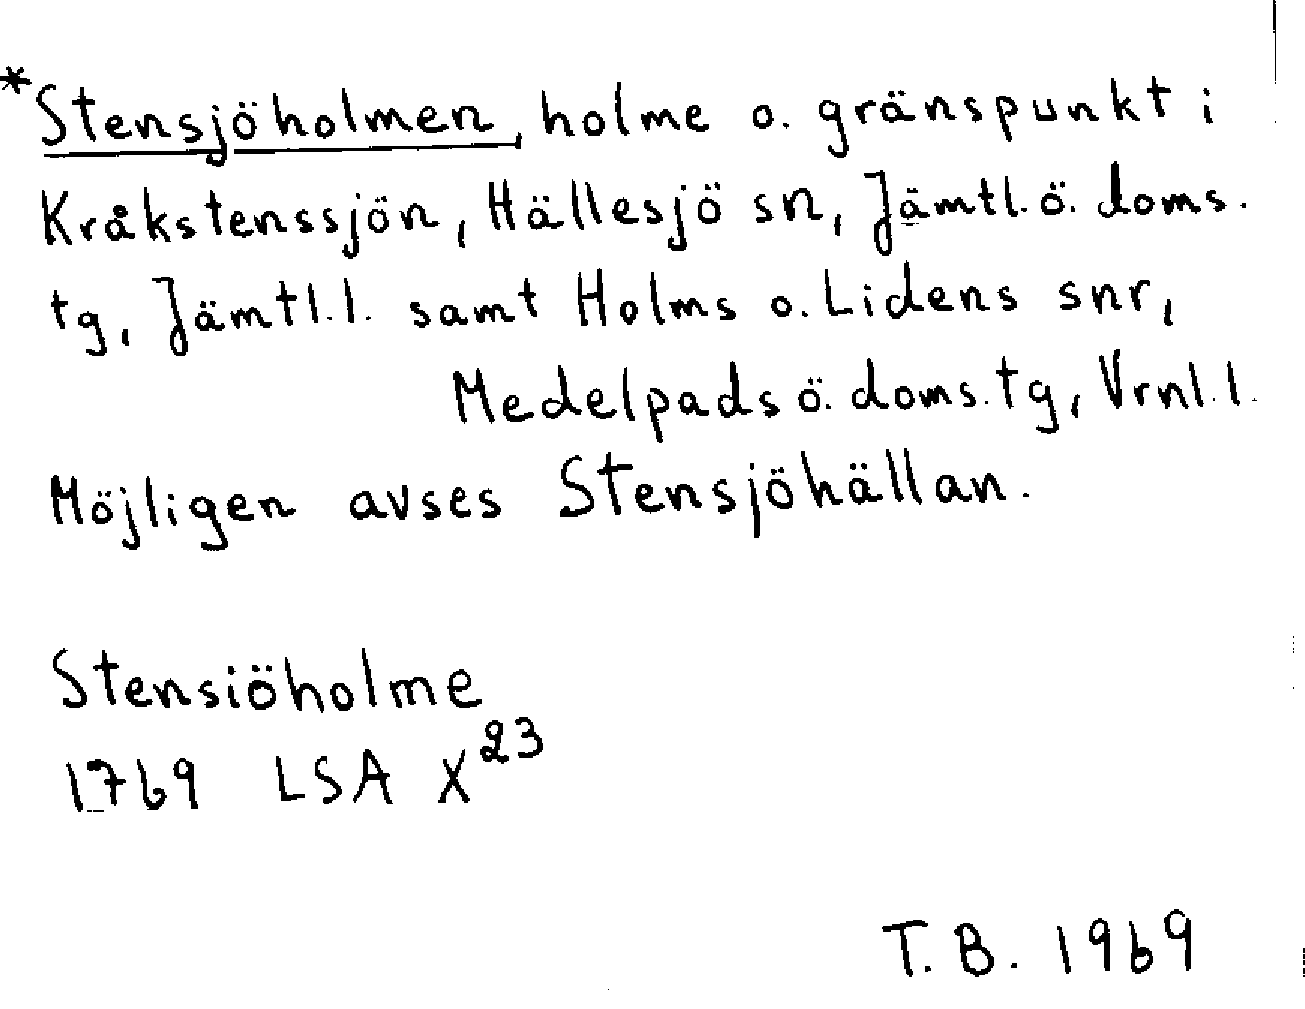 *Stensjöholmen, holme o. gränspunkt i
Kråkstenssjön, Hällesjö sn, Jämtl. ö. doms.
tg, Jämtl.l. samt Holms o. Lidens snr,
Medelpads ö. doms.tg, Vrnl.l.
Möjligen avses Stensjöhällan.
Stensiöholme
1769 LSA X²³
T.B. 1969